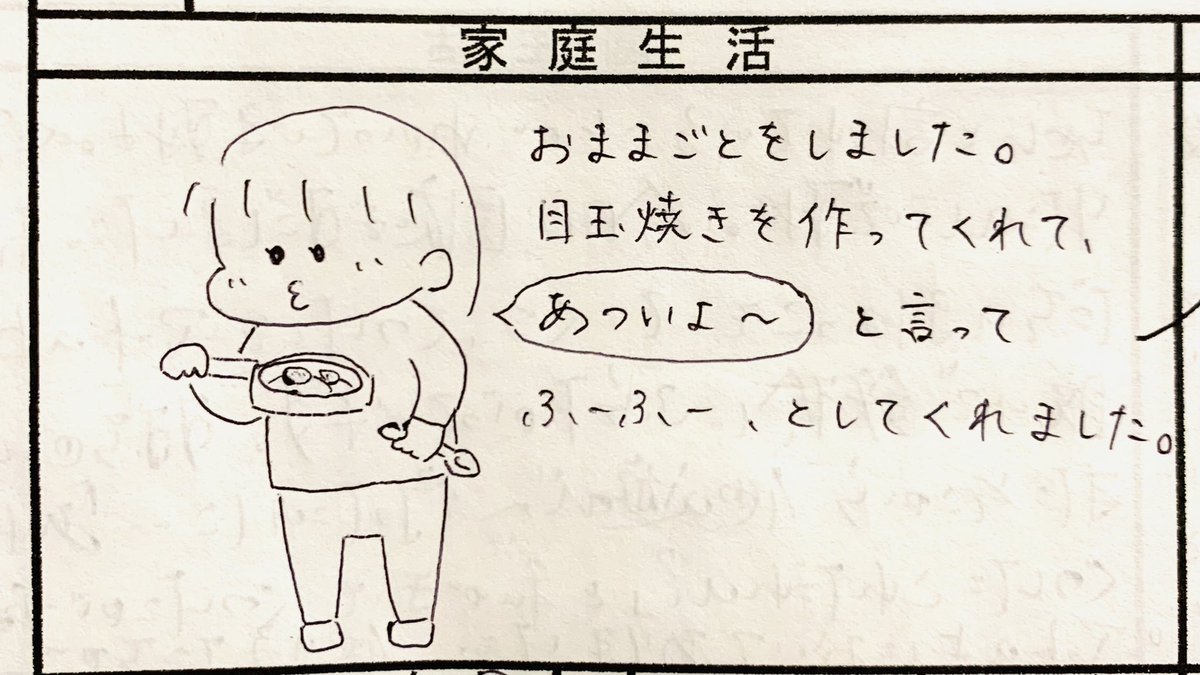 家庭生活
おままごとをしました。
目玉焼きを作ってくれて、
あついよ～ と言って
ふーふー、としてくれました。